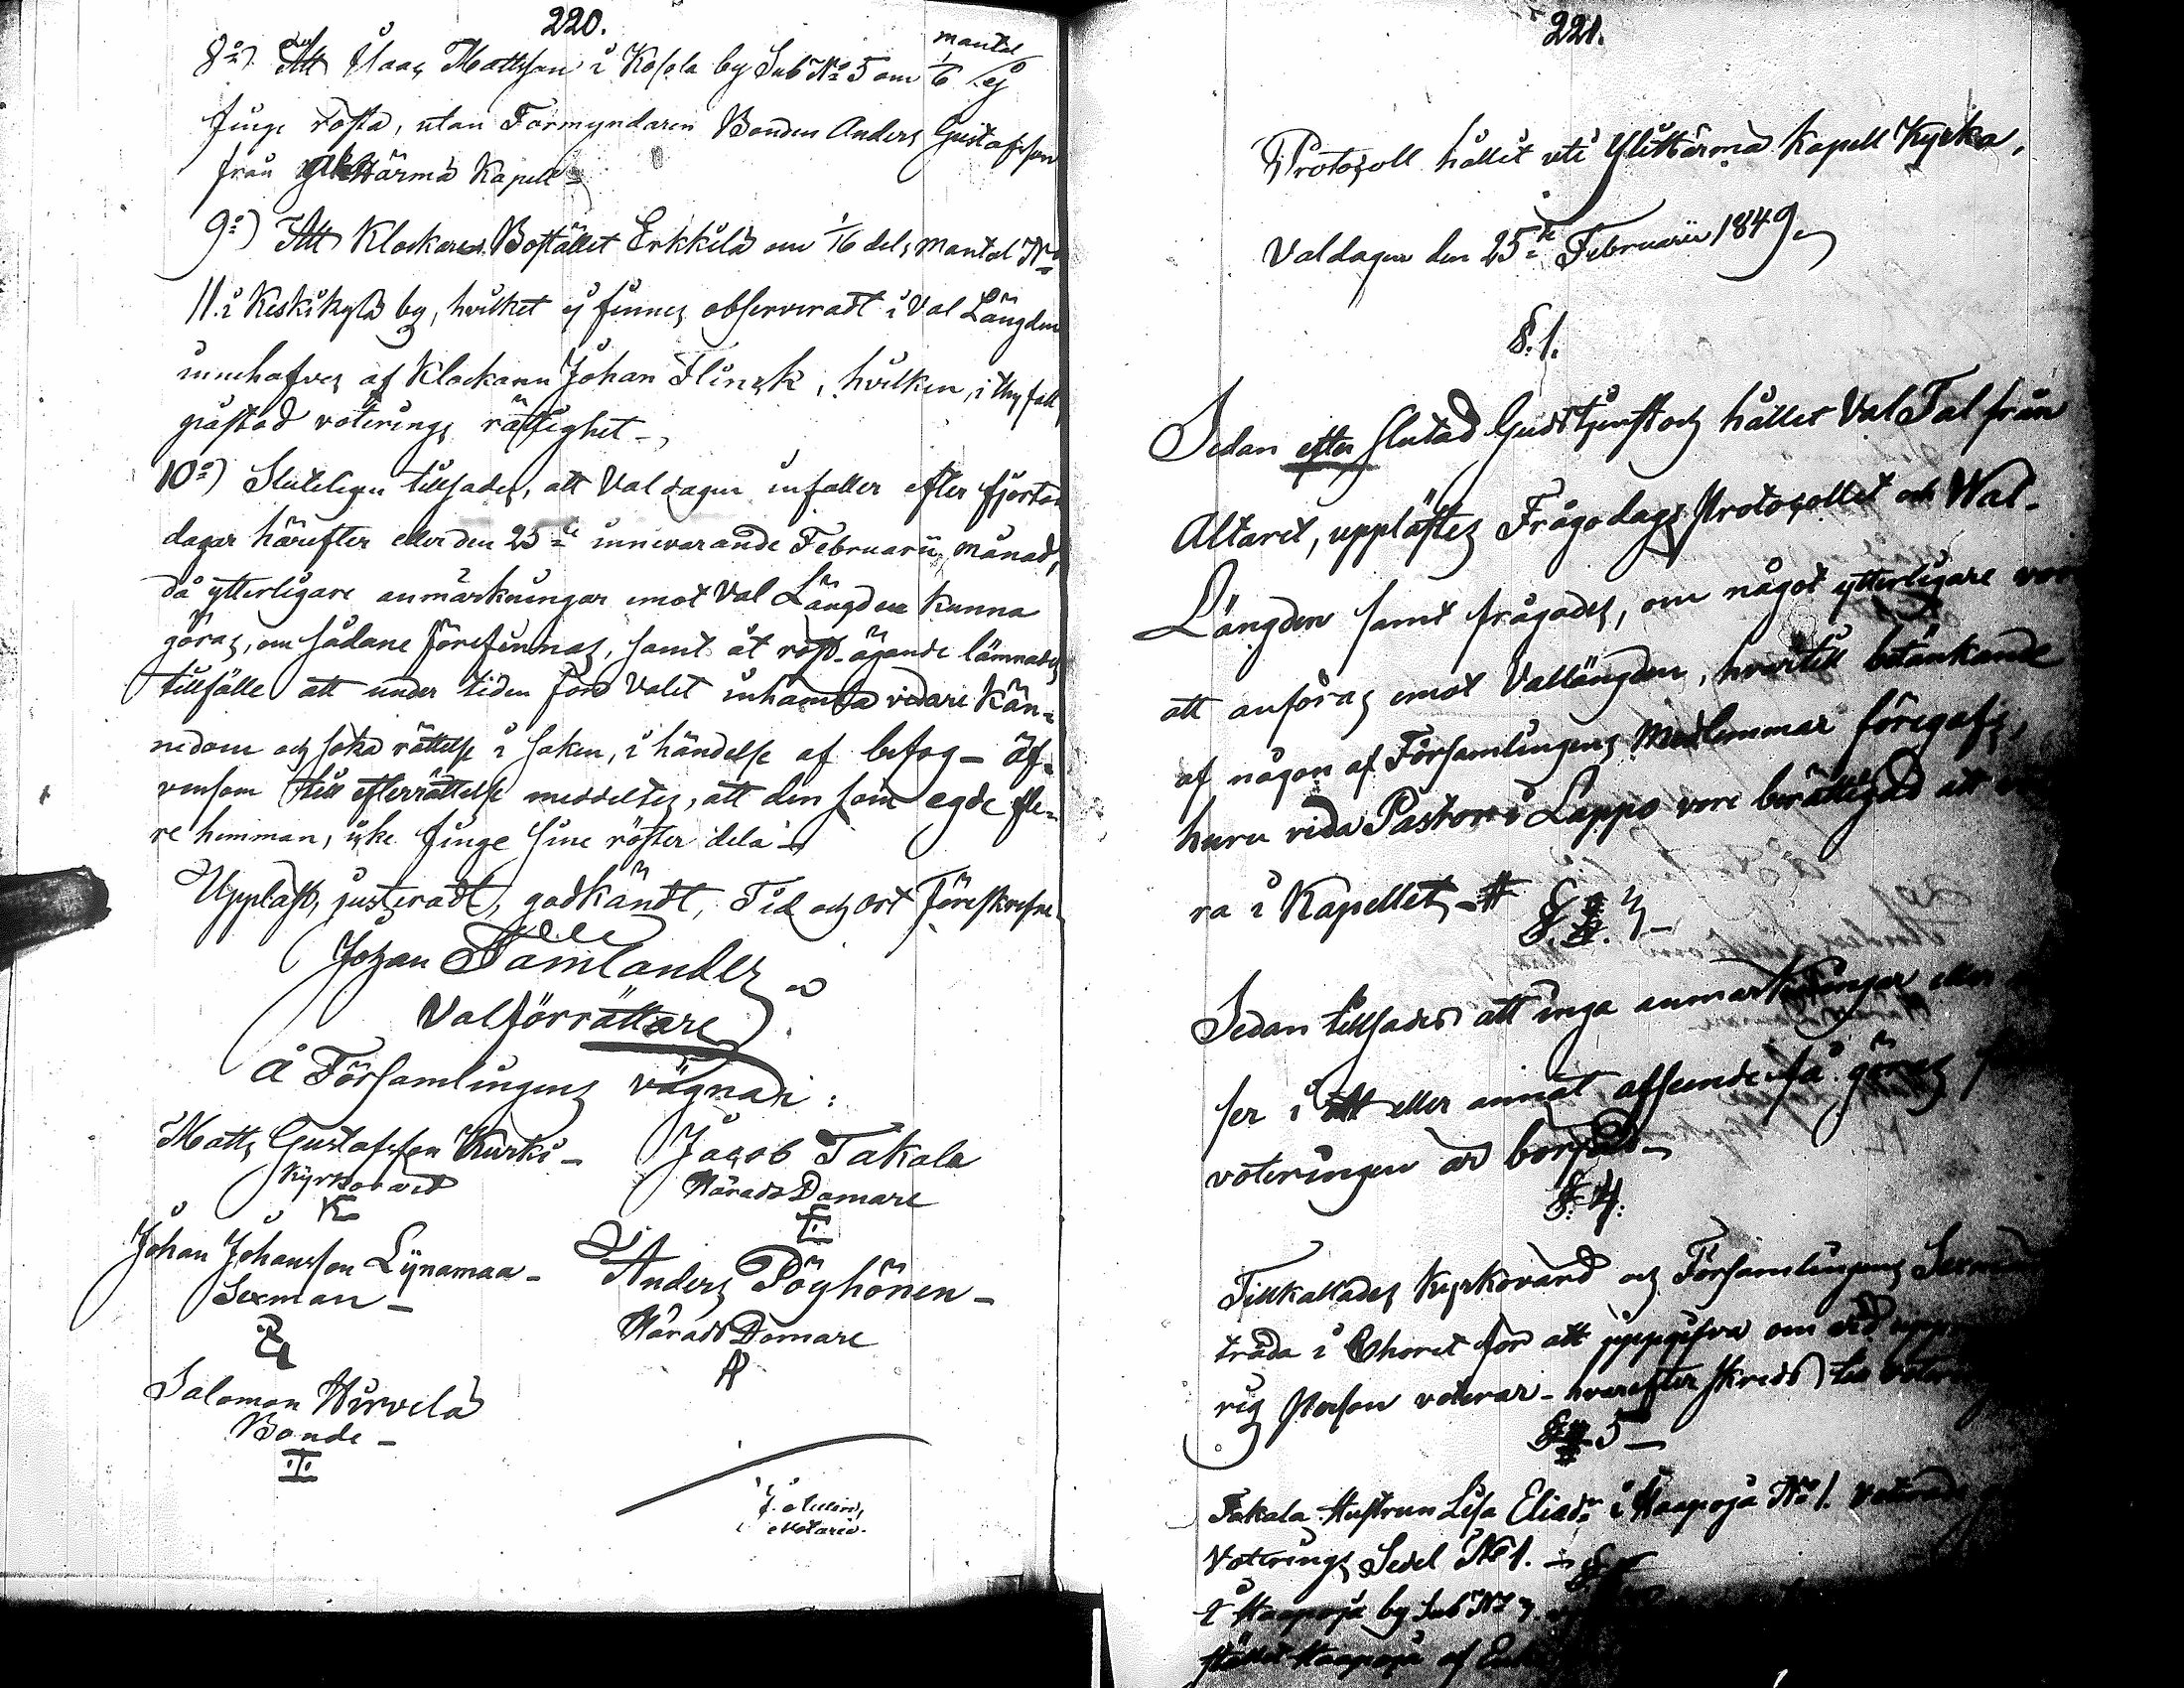 220.
8:o) Att Isaac Mattsson i Kosola by Sub No 5 om 1/6 mantal ej
finge rösta, utan Förmyndaren Bonden Anders Gustafsson
från Härmä Kapell
9:o) Att Klockare Bostället Erkkilä om 1/16 dels mantal No
11. i Keskikylä by, hvilket ej finnes observeradt i Val Längden
innehafves af Klockaren Johan Flinck, hvilken, i thy fall,
voterings rättighet
10:o) Sluteligen tillsades, att Valdagen infaller efter fjorton
dagar härefter eller den 25:te innevarande Februarii månad,
då ytterligare anmärkningar emot Val Längden kunna
göras, om sådane förefinnas, samt åt röst-ägande lämnades
tillfälle att under tiden före Valet inhämta vidare Kän-
nedom och söka rättelse i saken, i händelse af befog- äf-
vensom till efterrättelse meddeltes, att den som egde fle-
re hemman, icke finge sine röster dela
Uppläst, justeradt, godkändt, Tid och ort Föreskrefne
Johan
Valförrättare
Å Församlingens vägnar:
Matts Gustafsson Kurki
Kyrkovärd
Jacob Takala
Härads Domare
Johan Johansson Lynamaa
Sexman
Anders Pöyhönen
Härads Domare
Salomon Hirvelä
Bonde
Notarie.
221.
Protocoll hållit uti Ylihärmä Kapell Kyrka,
Valdagen den 25:te Februarii 1849.
§. 1.
Sedan efter slutad Gudstjenst och hållet Val Tal från
Altaret, upplästes Frågodags Protocollet och Wal-
Längden samt frågades, om något ytterligare vore
att anföras emot Vallängden, hvartill betänkande
af någon af Församlingens Medlemmar föregafs,
huru vida Pastor i Lappo vore berättigad att
ra i Kapellet
§.
Sedan tillsades att inga anmärkningar eller
ser i ett eller annat afseende få göras
voteringen är börjad
§. 4.
Tillkallades Kyrkovärd och Församlingens Sexmän
träda i Choret för att uppgifva om
rig Person voterar - hvarefter skreds till votering
§ 5
Takala Hustrun Lisa Eliasd:r i Haapoja No 1. voterade
Voterings Sedel No 1.
i Haapoja by Sub No
stället Haapoja af